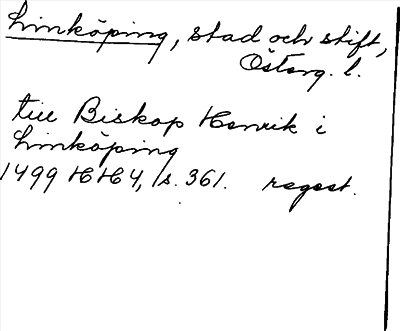 Linköping, stad och stift,
Österg. l.
till Biskop Henrik i
Linköping
1499 HH 4, s. 361. regest.